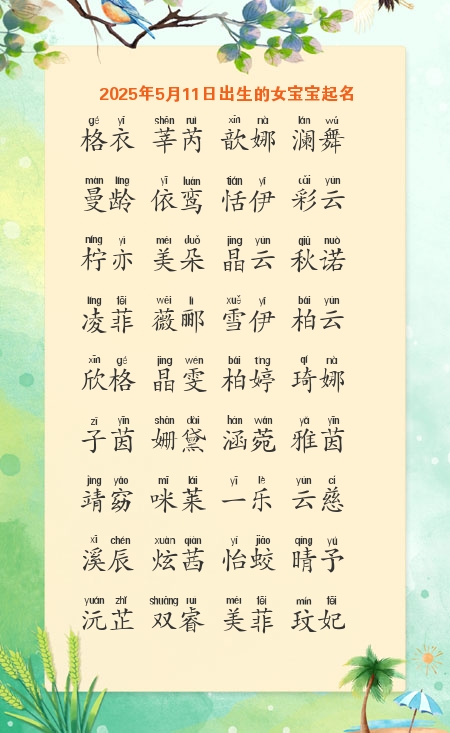 2025年5月11日出生的女宝宝起名
gé yī shēn ruì xīn nà lán wǔ
格衣 莘芮 歆娜 澜舞
màn líng yī luán tián yī cǎi yún
曼龄 依鸾 恬伊 彩云
níng yì měi duǒ jīng yún qiū nuò
柠亦 美朵 晶云 秋诺
líng fēi wēi lì xuě yī bǎi yún
凌菲 薇郦 雪伊 柏云
xīn gé jīng wén bǎi tíng qí nà
欣格 晶雯 柏婷 琦娜
zǐ yīn shān dài hán wǎn yǎ yīn
子茵 姗黛 涵菀 雅茵
jìng yǎo mī lái yī lè yún cí
靖窈 咪莱 一乐 云慈
xī chén xuàn qiàn yí jiāo qíng yú
溪辰 炫茜 怡蛟 晴予
yuán zhǐ shuāng ruì měi fēi mín fēi
沅芷 双睿 美菲 玟妃